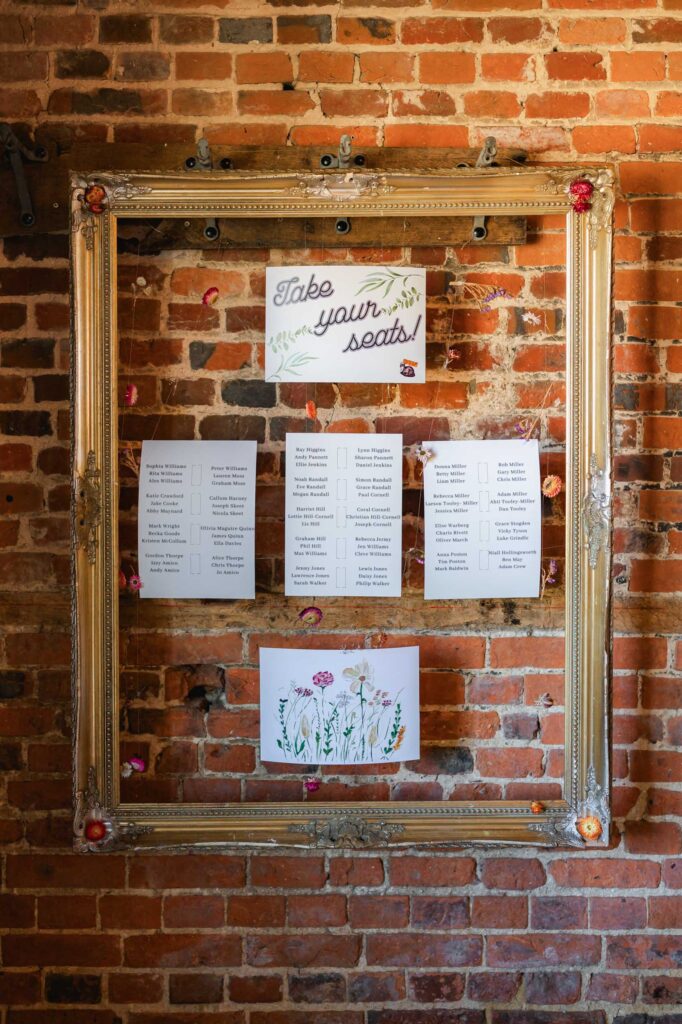 Take
your
seats!
Sophia Williams Peter Williams
Rita Williams Lauren Moss
Alen Williams Graham Moss
Katie Crawford Callum Harney
Jake Cooke Joseph Skeet
Abby Maynard Nicola Skeet
Mark Wright Olivia Maguire Quinn
Becka Goode James Quinn
Kristen McCallum Ella Davies
Gordon Thorpe Alice Thorpe
Izzy Amico Chris Thorpe
Andy Amico Jo Amico
Ray Higgins Lynn Higgins
Andy Pannett Sharon Pannett
Ellie Jenkins Daniel Jenkins
Noah Randall Simon Randall
Eve Randall Grace Randall
Megan Randall Paul Cornell
Harriet Hill Coral Cornell
Lottie Hill-Cornell Christian Hill-Cornell
Liz Hill Joseph Cornell
Graham Hill Rebecca Jermy
Phil Hill Jen Williams
Max Williams Clive Williams
Jenny Jones Lewis Jones
Lawrence Jones Daisy Jones
Sarah Walker Philip Walker
Donna Miller Rob Miller
Betty Miller Gary Miller
Liam Miller Chris Miller
Rebecca Miller Adam Miller
Larson Tooley- Miller Abil Tooley-Miller
Jessica Miller Dan Tooley
Elise Warberg Grace Stogden
Charis Rivett Vicky Tyson
Oliver March Luke Grindle
Anna Poston Niall Hollingsworth
Tim Poston Ben May
Mark Baldwin Adam Crane